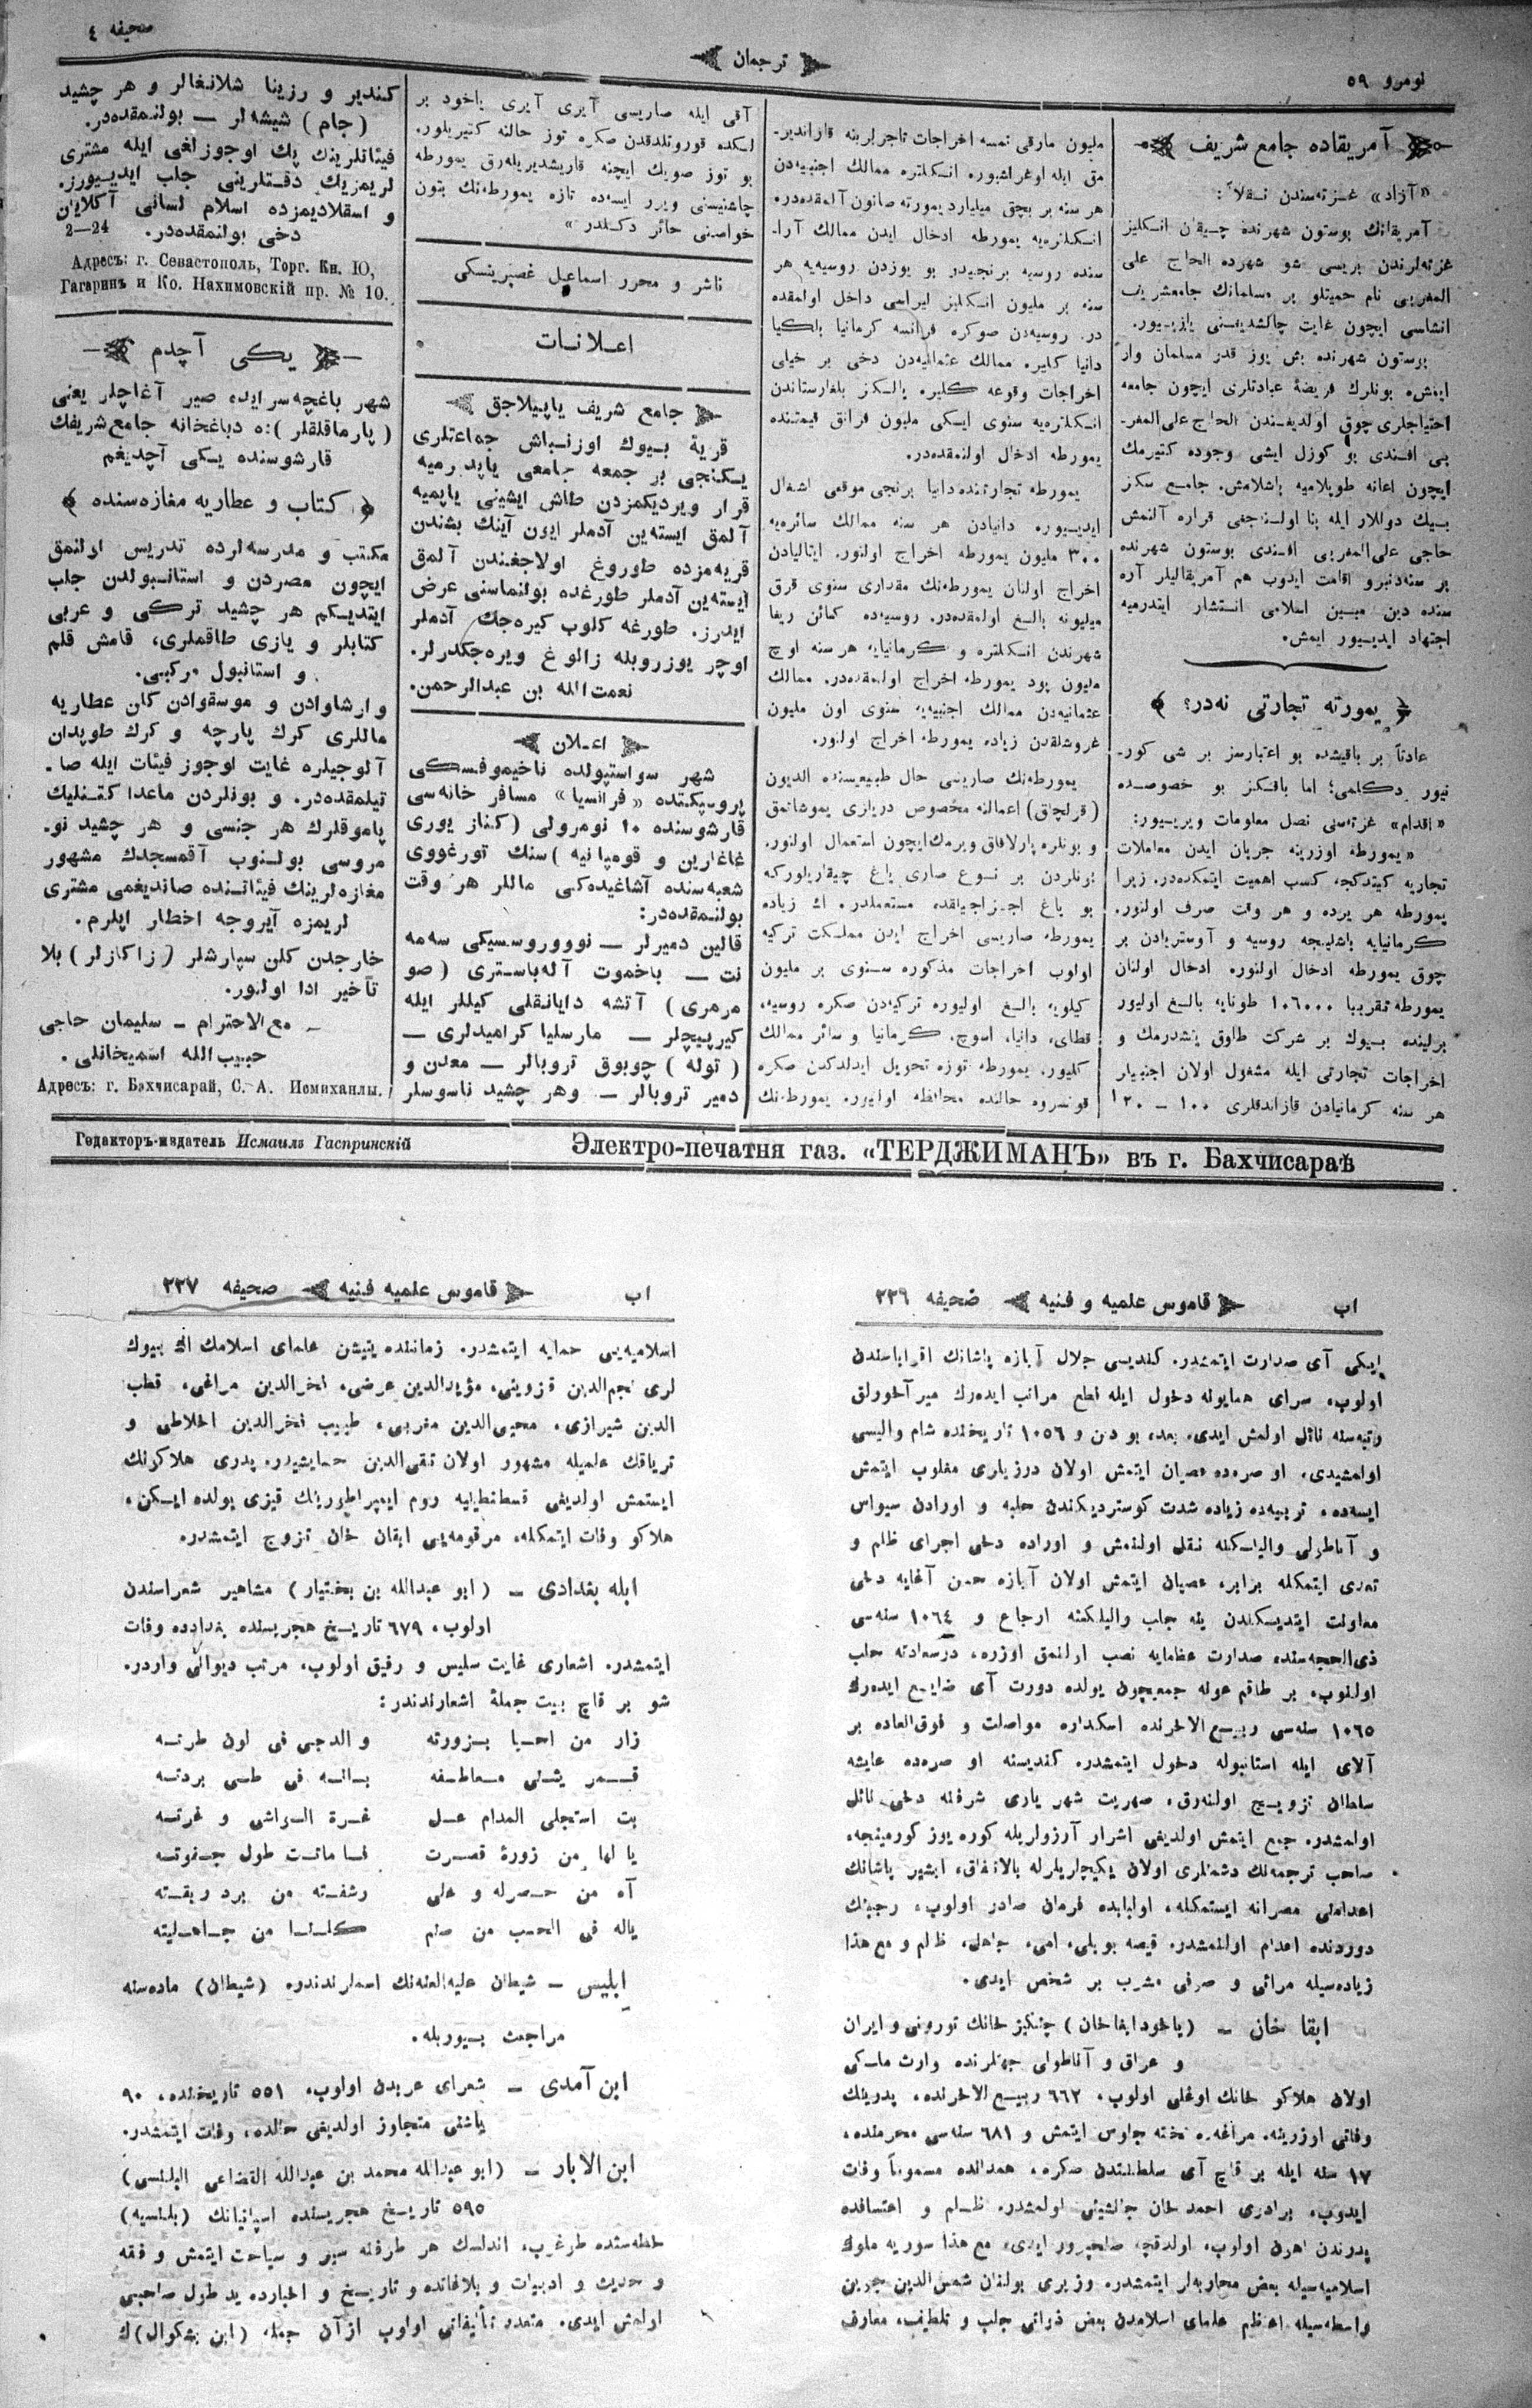 نومرو ٥٩
ترجمان
صحیفه ٤
آمریقاده جامع شریف
«آزاد» غزته‌سندن نقلاً:
آمریقانك بوستون شهرنده چیقان انکلیز
غزته‌لرندن بریسی شو شهرده الحاج علی
المغربی نام حمیتلو بر مسلمانك جامعشریف
انشاسی ایچون غایت چالشدیغنی یازییور.
بوستون شهرنده بش یوز قدر مسلمان وار
ایمش، بونلرك فریضهٔ عبادتلری ایچون جامعه
احتیاجلری چوق اولدیغندن الحاج علی المغر-
بی افندی بو کوزل ایشی وجوده کتیرمك
ایچون اعانه طوپلامیه باشلامش. جامع سکز
بیك دوللار ایله بنا اولنه‌جغی قراره آلنمش
حاجی علی المغربی افندی بوستون شهرنده
بر سنه‌دنبرو اقامت ایدوب هم آمریقالیلر آره
سنده دین مبین اسلامی انتشار ایتدرمیه
اجتهاد ایدییور ایمش.
یمورته تجارتی نه‌در؟
عادتاً بر باقیشده بو اعتبارسز بر شی کور-
نیور دکلمی؛ اما باقکز بو خصوصده
«اقدام» غزته‌سی نصل معلومات ویرییور:
«یمورطه اوزرینه جریان ایدن معاملات
تجاریه کیتدکجه کسب اهمیت ایتمکده‌در. زیرا
یمورطه هر یرده و هر وقت صرف اولنور.
کرمانیایه باشلیجه روسیه و آوستریادن بر
چوق یمورطه ادخال اولنور. ادخال اولنان
یمورطه تقریبا ١٠٦٠٠٠ طونایه بالغ اولیور
برلینده بیوك بر شرکت طاوق یتشدرمك و
اخراجات تجارتی ایله مشغول اولان اجنبیلر
هر سنه کرمانیادن قازاندقلری ١٠٠ – ١٢٠
ملیون مارقی نمسه اخراجات تاجرلرینه قازاندیر-
مق ایله اوغراشیور. انکلتره ممالك اجنبیه‌دن
هر سنه بر بچق میلیارد یمورته صاتون آلمقده‌در.
انکلتره‌یه یمورطه ادخال ایدن ممالك آرا-
سنده روسیه برنجیدر بو یوزدن روسیه‌یه هر
سنه بر ملیون انکلیز لیراسی داخل اولمقده
در. روسیه‌دن صوکره فرانسه کرمانیا بلكیا
دانیا کلیر. ممالك عثمانیه‌دن دخی بر خیلی
اخراجات وقوعه کلیر. یالکز بلغارستاندن
انکلتره‌یه سنوی ایکی ملیون فرانق قیمتنده
یمورطه ادخال اولنمقده‌در.
یمورطه تجارتنده دانیا برنجی موقعی اشغال
ایدییور. دانیادن هر سنه ممالك سائره‌یه
٣٠٠ ملیون یمورطه اخراج اولنور. ایتالیادن
اخراج اولنان یمورطه‌نك مقداری سنوی قرق
میلیونه بالغ اولمقده‌در. روسیه‌ده کائن ریغا
شهرندن انکلتره و کرمانیایه هر سنه اوچ
ملیون پود یمورطه اخراج اولنمقده‌در. ممالك
عثمانیه‌دن ممالك اجنبیه‌یه سنوی اون ملیون
غروشلقدن زیاده یمورطه اخراج اولنور.
یمورطه‌نك صاریسی حال طبیعیسنده الدیون
(قرلچاق) اعمالنه مخصوص دریلری یموشاتمق
و بونلره پارلاقلق ویرمك ایچون استعمال اولنور.
بونلردن بر نوع صاری یاغ چیقاریلورکه
بو یاغ اجزاجیلقده مستعملدر. اك زیاده
یمورطه صاریسی اخراج ایدن مملکت ترکیه
اولوب اخراجات مذکوره سنوی بر ملیون
کیلویه بالغ اولیور. ترکیه‌دن صکره روسیه،
قطای، دانیا، اسوچ، کرمانیا و سائر ممالك
کلیور. یمورطه توزه تحویل ایدلدکدن صکره
قونسروه حالنده محافظه اولنیور. یمورطه‌نك
آقی ایله صاریسی آیری آیری یاخود بر
لکده قوروتلدقدن صکره توز حالنه کتیریلور.
بو توز صویك ایچنه قاریشدیریله‌رق یمورطه
چاشنیسنی ویرر ایسه‌ده تازه یمورطه‌نك بتون
خواصنی حائز دکلدر»
ناشر و محرر اسماعیل غصپرینسکی
اعلانات
جامع شریف یاپیلاجق
قریهٔ بیوك اوزنباش جماعتلری
یکنجی بر جمعه جامعی یاپدرمیه
قرار ویردیکمزدن طاش ایشینی یاپمیه
آلمق ایسته‌ین آدملر ایون آینك بشندن
قریه‌مزده طوروغ اولاجغندن آلمق
ایسته‌ین آدملر طورغده بولنماسنی عرض
ایدرز. طورغه کلوب کیره‌جك آدملر
اوچر یوزروبله زالوغ ویره‌جکدرلر.
نعمت الله بن عبدالرحمن.
اعلان
شهر سواستپولده ناخیموفسکی
پروسپکتده «فرانسیا» مسافر خانه‌سی
قارشوسنده ١٠ نومرولی (کناز یوری
غاغارین و قومپانیه) سنك تورغووی
شعبه‌سنده آشاغیده‌کی ماللر هر وقت
بولنمقده‌در:
قالین دمیرلر — نوووروسسیکی سه‌مه
نت — باخموت آله‌باستری (صو
مرمری) آتشه دایانقلی کیللر ایله
کیرپیچلر — مارسلیا کرامیدلری —
(توله) چوبوق تروبالر — معدن و
دمیر تروبالر — وهر چشید ناسوسلر
کندیر و رزینا شلانغالر و هر چشید
(جام) شیشه‌لر — بولنمقده‌در.
فیئاتلرینك پك اوجوزلغی ایله مشتری
لریمزیك دقتلرینی جلب ایدییورز.
و اسقلادیمزده اسلام لسانی آکلایان
دخی بولنمقده‌در. 24—2
Адресъ: г. Севастополь, Торг. Кн. Ю,
Гагаринъ и Ко. Нахимовскій пр. № 10.
یکی آچدم
شهر باغچه‌سرایده صیر آغاچلر یعنی
(پارماقلقلر)ده دباغخانه جامع شریفك
قارشوسنده یکی آچدیغم
کتاب و عطاریه مغازه‌سنده
مکتب و مدرسه‌لرده تدریس اولنمق
ایچون مصردن و استانبولدن جلب
ایتدیکم هر چشید ترکی و عربی
کتابلر و یازی طاقملری، قامش قلم
و استانبول مرکبی.
وارشاوادن و موسقوادن کلن عطاریه
ماللری كرك پارچه و كرك طوپدان
آلوجیلره غایت اوجوز فیئات ایله صا-
تیلمقده‌در. و بونلردن ماعدا کتنلیك
پاموقلرك هر جنسی و هر چشید نو-
مروسی بولنوب آقمسجدك مشهور
مغازه‌لرینك فیئاتنده صاتدیغمی مشتری
لریمزه آیروجه اخطار ایلرم.
خارجدن کلن سپارشلر (زاکازلر) بلا
تأخیر ادا اولنور.
مع الاحترام – سلیمان حاجی
حبیب الله اسمیخانلی.
Адресъ: г. Бахчисарай, С. А. Исмиханлы.
Редакторъ-издатель Исмаилъ Гаспринскій
Электро-печатня газ. «ТЕРДЖИМАНЪ» въ г. Бахчисараѣ
اب
قاموس علمیه و فنیه
صحیفه ٢٢٦
ایکی آی صدارت ایتمشدر. کندیسی جلال آبازه پاشانك اقرباسندن
اولوب، سرای همایونه دخول ایله قطع مراتب ایده‌رك میر آخورلق
رتبه‌سنه نائل اولمش ایدی. بعده بو دن و ١٠٥٦ تاریخنده شام والیسی
اولمشیدی. او صره‌ده عصیان ایتمش اولان درزیلری مغلوب ایتمش
ایسه‌ده، تربیه‌ده زیاده شدت کوستردیکندن حلبه و اورادن سیواس
و آناطولی والیلکنه نقل اولنمش و اوراده دخی اجرای ظلم و
تعدی ایتمکله برابر، عصیان ایتمش اولان آبازه حسن آغایه دخی
معاونت ایتدیکندن ینه جلب والیلکنه ارجاع و ١٠٦٤ سنه‌سی
ذی الحجه‌سنده صدارت عظمایه نصب اولنمق اوزره، درسعادته جلب
اولنوب، بر طاقم عونه جمعیچون یولده دورت آی ضایع ایده‌رك
١٠٦٥ سنه‌سی ربیع الاخرنده اسکداره مواصلت و فوق العاده بر
آلای ایله استانبوله دخول ایتمشدر. کندیسنه او صره‌ده عایشه
سلطان تزویج اولنه‌رق، صهریت شهریاری شرفنه دخی نائل
اولمشدر. جمع ایتمش اولدیغی اشرار آرزولریله کوره یوز کورمینجه،
صاحب ترجمه‌نك دشمنلری اولان یکیچریلرله بالاتفاق، ابشیر پاشانك
اعدامنی مصرانه ایستمکله، اولبابده فرمان صادر اولوب، رجبك
دوردنده اعدام اولنمشدر. قیصه بویلی، امی، جاهل، ظالم و مع هذا
زیاده‌سیله مرائی و صوفی مشرب بر شخص ایدی.
ابقا خان – (یاخود ابغاخان) چنکیز خانك تورونی و ایران
و عراق و آناطولی جهتلرنده وارث ملکی
اولان هلاکو خانك اوغلی اولوب، ٦٦٢ ربیع الاخرنده، پدرینك
وفاتی اوزرینه، مراغه‌ده تخته جلوس ایتمش و ٦٨١ سنه‌سی محرمنده،
١٧ سنه ایله بر قاچ آی سلطنتدن صکره، همدانده مسموماً وفات
ایدوب، برادری احمد خان جانشینی اولمشدر. ظلم و اعتسافده
پدرندن اهون اولوب، اولدقچه صلحپرور ایدی، مع هذا سوریه ملوك
اسلامیه‌سیله بعض محاربه‌لر ایتمشدر. وزیری بولنان شمس الدین جوینی
واسطه‌سیله اعظم علمای اسلامدن بعض ذواتی جلب و تلطیف، معارف
اب
قاموس علمیه فنیه
صحیفه ٢٢٧
اسلامیه‌یی حمایه ایتمشدر. زماننده یتیشن علمای اسلامك اك بیوك
لری نجم الدین قزوینی، مؤیدالدین عرضی، فخرالدین مراغی، قطب
الدین شیرازی، محیی الدین مغربی، طبیب فخرالدین اخلاطی و
تریاقك علمیله مشهور اولان تقی الدین حشایشیدر. پدری هلاکونك
ایستمش اولدیغی قسطنطینیه روم ایمپراطورینك قیزی یولده ایکن،
هلاکو وفات ایتمکله، مرقومه‌یی ابقان خان تزوج ایتمشدر.
ابله بغدادی – (ابو عبدالله بن بختیار) مشاهیر شعراسندن
اولوب، ٦٧٩ تاریخ هجریسنده بغدادده وفات
ایتمشدر. اشعاری غایت سلیس و رفیق اولوب، مرتب دیوانی واردر.
شو بر قاچ بیت جملهٔ اشعارندندر:
زار من احیا بزورته والدجی فی لون طرته
قمر یثنی معاطفه بانه فی طی بردته
بت استجلی المدام علی غرة الواشی و غرته
یا لها من زورة قصرت فاماتت طول جفوته
آه من خصر له و علی رشفته من برد ریقته
یاله فی الحسن من صنم کلنا من جاهلیته
ابلیس – شیطان علیه اللعنه‌نك اسملرندندر. (شیطان) ماده‌سنه
مراجعت بیوریله.
ابن آمدی – شعرای عربدن اولوب، ٥٥١ تاریخنده، ٩٠
یاشنی متجاوز اولدیغی حالده، وفات ایتمشدر.
ابن الابار – (ابو عبدالله محمد بن عبدالله القضاعی البلنسی)
٥٩٥ تاریخ هجریسنده اسپانیانك (بلنسیه)
خطه‌سنده طوغوب، اندلسك هر طرفنه سیر و سیاحت ایتمش و فقه
و حدیث و ادبیات و بلاغاتده و تاریخ و اخبارده ید طول صاحبی
اولمش ایدی. متعدد تألیفاتی اولوب ازآن جمله (ابن بشکوال)ك